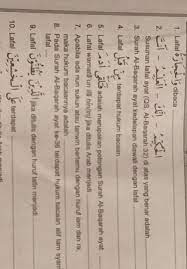 1. Lafal وَالْحِجَارَةُ dibaca
2. الْحَكِيْمُ - - اَنْتَ
Susunan lafal ayat (QS. Al-Baqarah :32) di atas yang benar adalah
3. Surah Al-Baqarah ayat kedelapan diawali dengan lafal
4. Lafal مِنْ قَبْلُ terdapat hukum bacaan
5. Lafal adalah merupakan potongan Surah Al-Baqarah ayat
6. Lafal jika ditulis dengan huruf Arab menjadi
7. Apabila ada nun sukun atau tanwin bertemu dengan huruf lam dan ra,
maka hukum bacaannya adalah
8. Pada Surah Al-Baqarah ayat ke-36 terdapat hukum bacaan alif lam
9. Lafal jika ditulis dengan huruf latin menjadi
10. Lafal terdapat